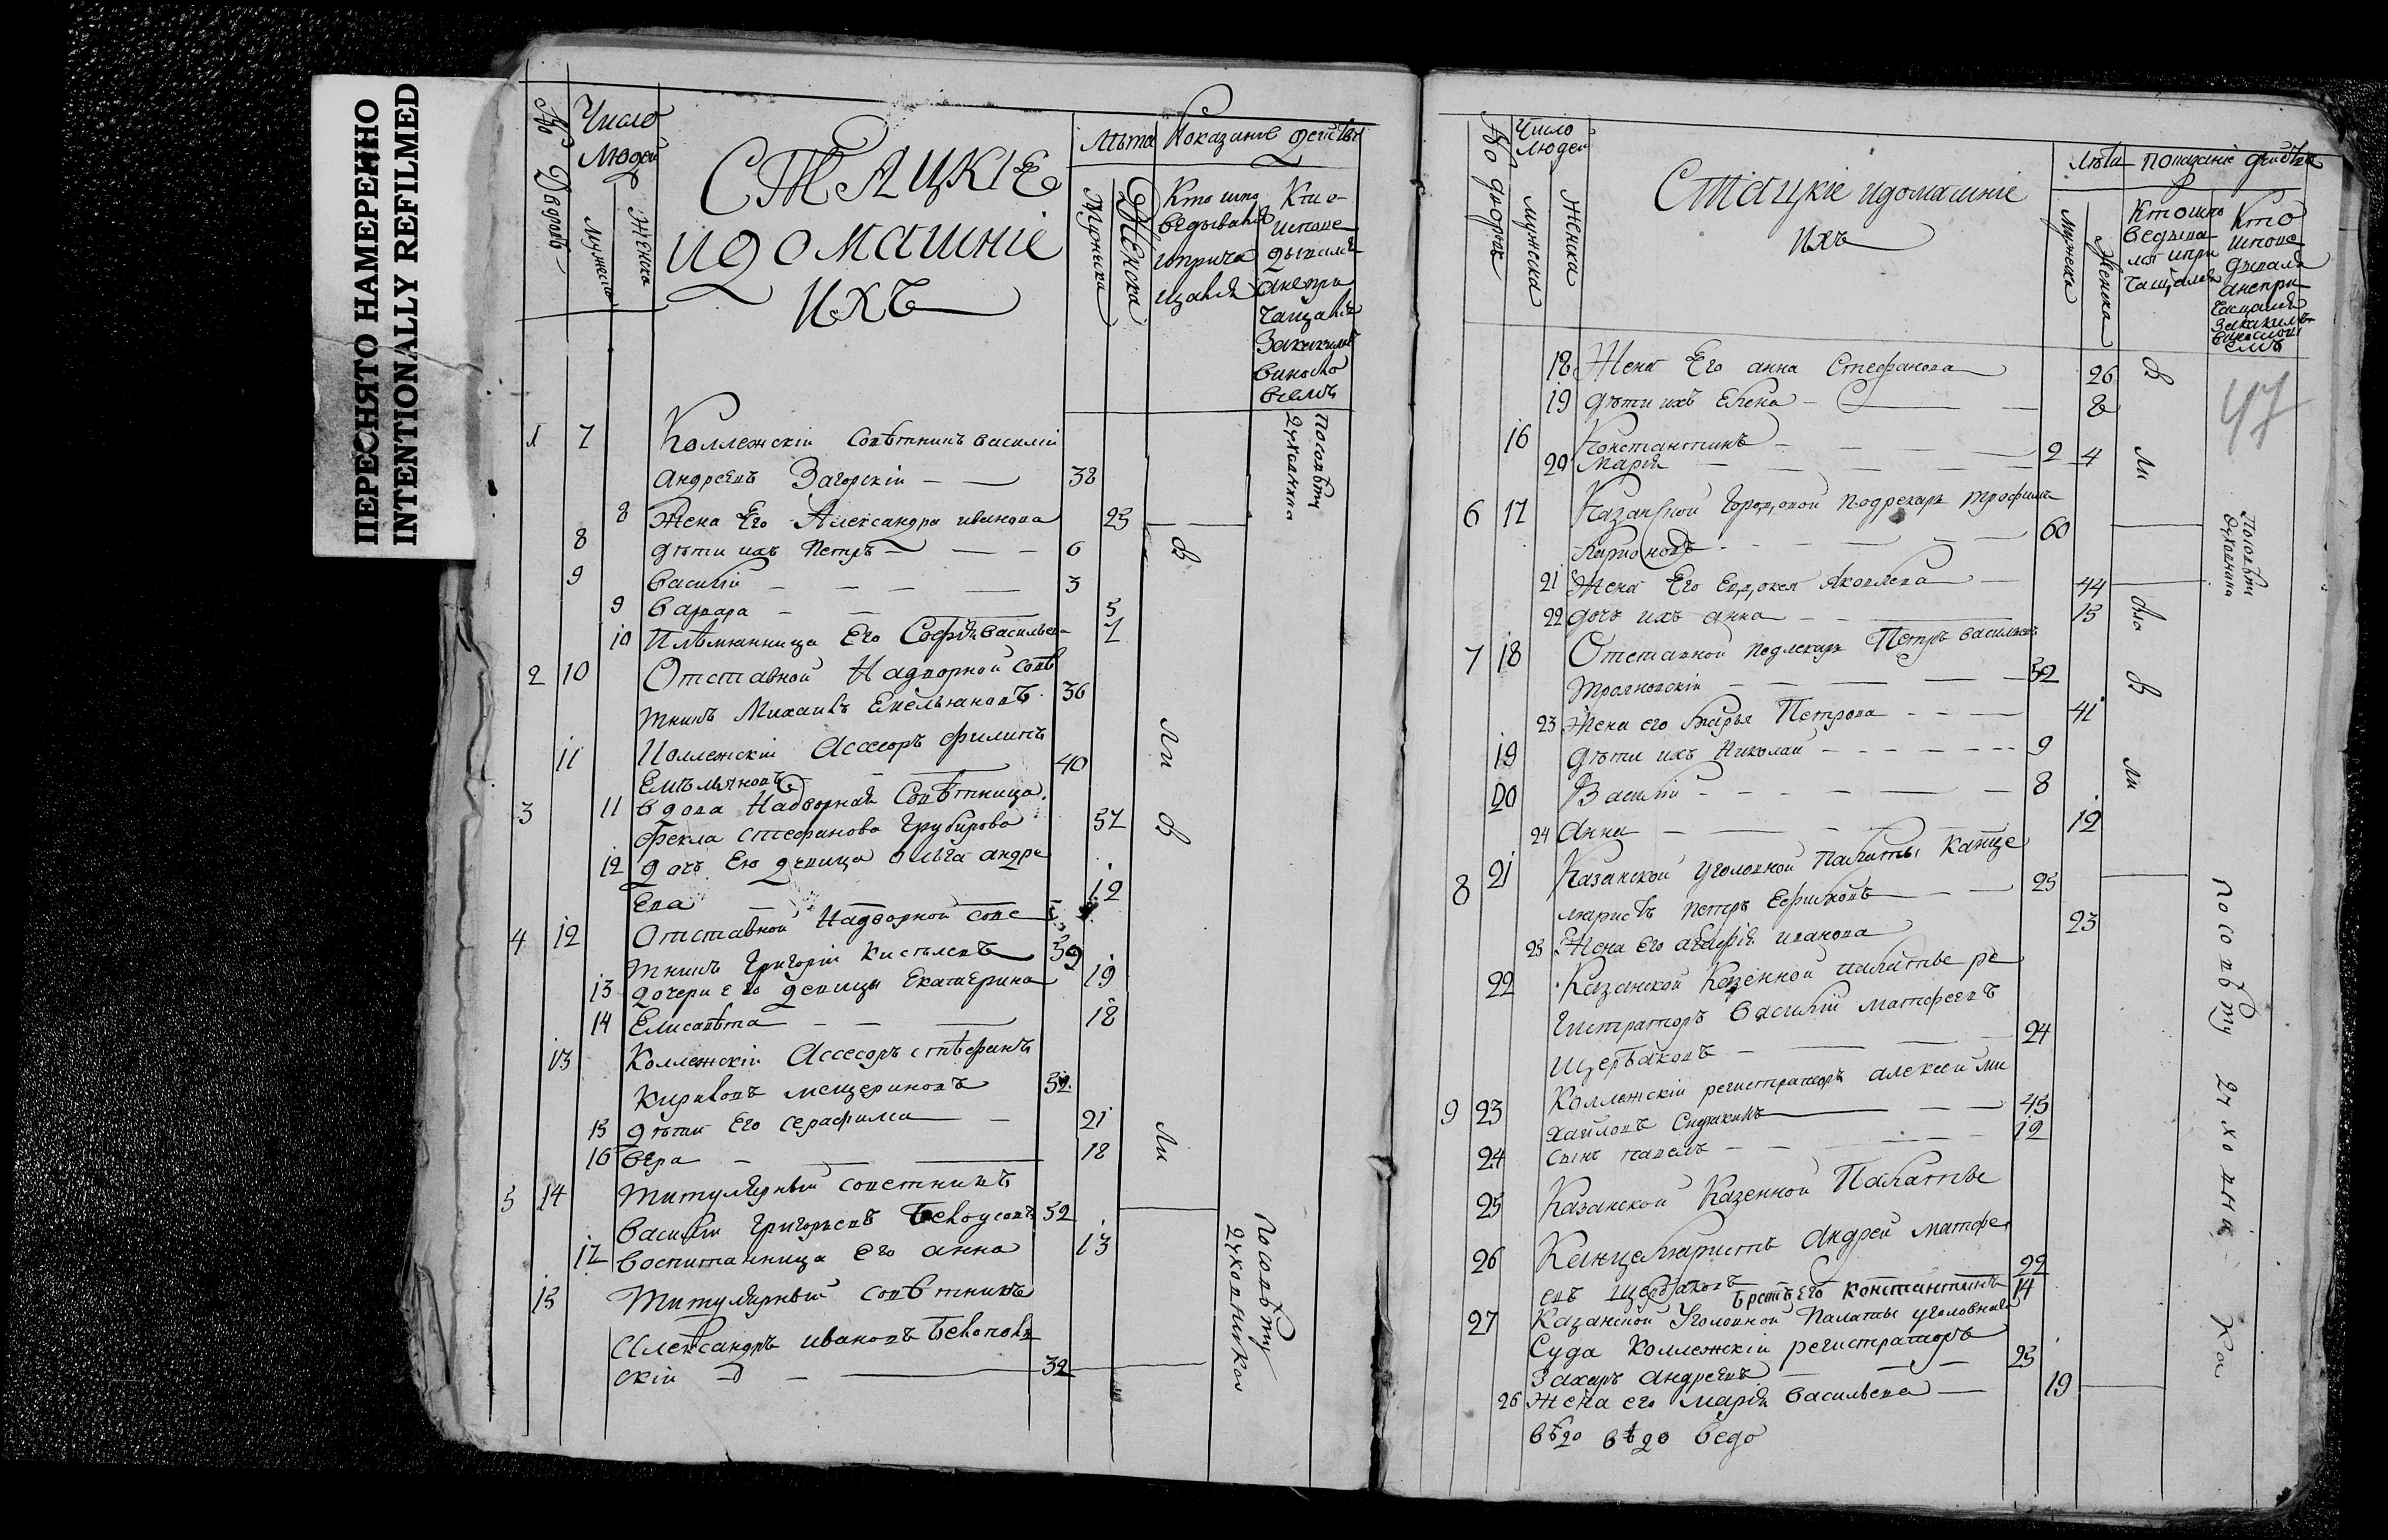 ПЕРЕСНЯТО НАМЕРЕННО
INTENTIONALLY REFILMED
Число
Людей
Мужеска
Женска
СТАЦКІЕ
идомашніе
ихъ
Лѣта
Мужеска
Женска
Показаніе действа
Кто испо
ведывался
иприча
щался
Кто
испове
дывался
анепри
чащался
Закакимъ
виносло
віемъ
1 7 Коллежскій Совѣтникъ василій
андреевъ Загорскій 38
8 Жена Его Александра иванова 25
8 дѣти ихъ Петръ 6
9 василій 3
9 варвара 5
10 Племянница Его Софія васильева 7
2 10 Отставной Надворной совѣ
тникъ Михаилъ Емельяновъ 36
11 Коллежскій Асессоръ филипъ
Емѣльяновъ 40
3 11 вдова Надворная Совѣтница
Фекла стефанова Грубирова 57
12 дочь Ею девица ольга андре
ева 12
4 12 Отставной Надворной сове
тникъ Григорій Киселевъ 59
13 дочери его девицы Екатерина 19
14 Елисавѣта 18
13 Коллежскій Ассесоръ стѣфанъ
Кириловъ мещериновъ 52
15 дѣти Его серафима 21
16 вера 18
5 14 титулярный советникъ
василій Григорьевъ Белоусовъ 52
17 воспитанница Его анна 13
15 титулярный совѣтникъ
Александръ ивановъ Белопол
скій 32
Посовѣту
духовника
В
ли
В
ли
Посовѣту
духовников
No дворъ
Число
людей
мужеска
Женска
Стацкіе идомашніе
ихъ
Лѣта
мужеска
Женска
показаніе действа
Кто испо
ведыва
лся ипри
чащался
Кто
испове
дывался
анепри
чащался
Закакимъ
47
18 Жена Его анна Стефанова 26
19 дѣти ихъ Елена 8
16 Константинъ 2
20 Марія 4
6 17 Казанской Городовой подлекарь трофимъ
Ларионовъ 60
21 Жена Его Евдокея Яковлева 44
22 дочь ихъ анна 15
7 18 Отставной подлекарь Петръ васильевъ
трояновскій 52
23 Жена его Марья Петрова 41
19 дѣти ихъ Николай 9
20 Василій 8
24 Анна 12
8 21 Казанской уголовной Палаты канце
ляристъ петръ Ефимовъ 25
25 Жена его агафія иванова 23
22 Казанской Казенной палатье ре
гистраторъ василій матфеевъ
щербаковъ 24
9 23 Коллежскій регистраторъ алексей ми
хайловъ 45
24 Сынъ павелъ 12
25 Казанской Казенной Палатье
26 Канцеляристъ Андрей матфе
евъ щербаковъ 22
братъ Его константинъ 14
27 Казанской Уголовной Палаты уголовнаго
Суда Коллежскій регистраторъ
Захаръ андреевъ 25
26 Жена его марія васильева 19
В
ли
В
ли
Посовѣту
духовника
посовѣту духовника